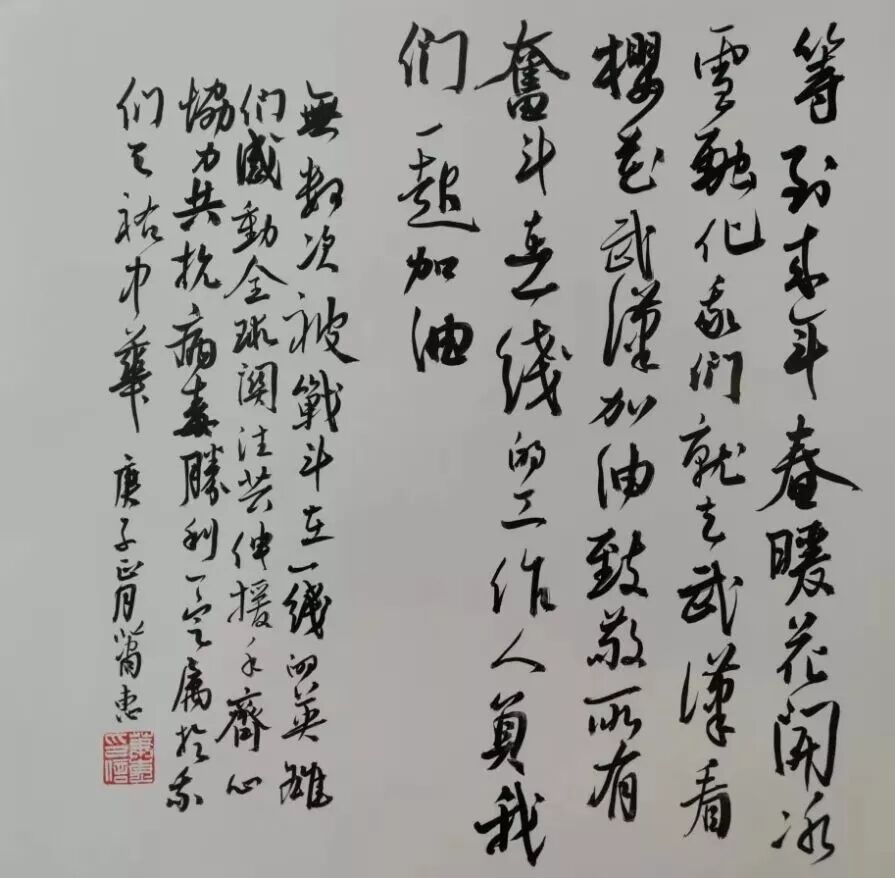 等到来年春暖花開冰
雪融化我們就去武漢看
櫻花武漢加油致敬所有
奮斗在一线的工作人員我
们一起加油
無数次被戰斗在一线的英雄
们感動全球関注共伸援手齊心
協力共抗病毒勝利一定属於我
们天祐中華 庚子正月蕭惠